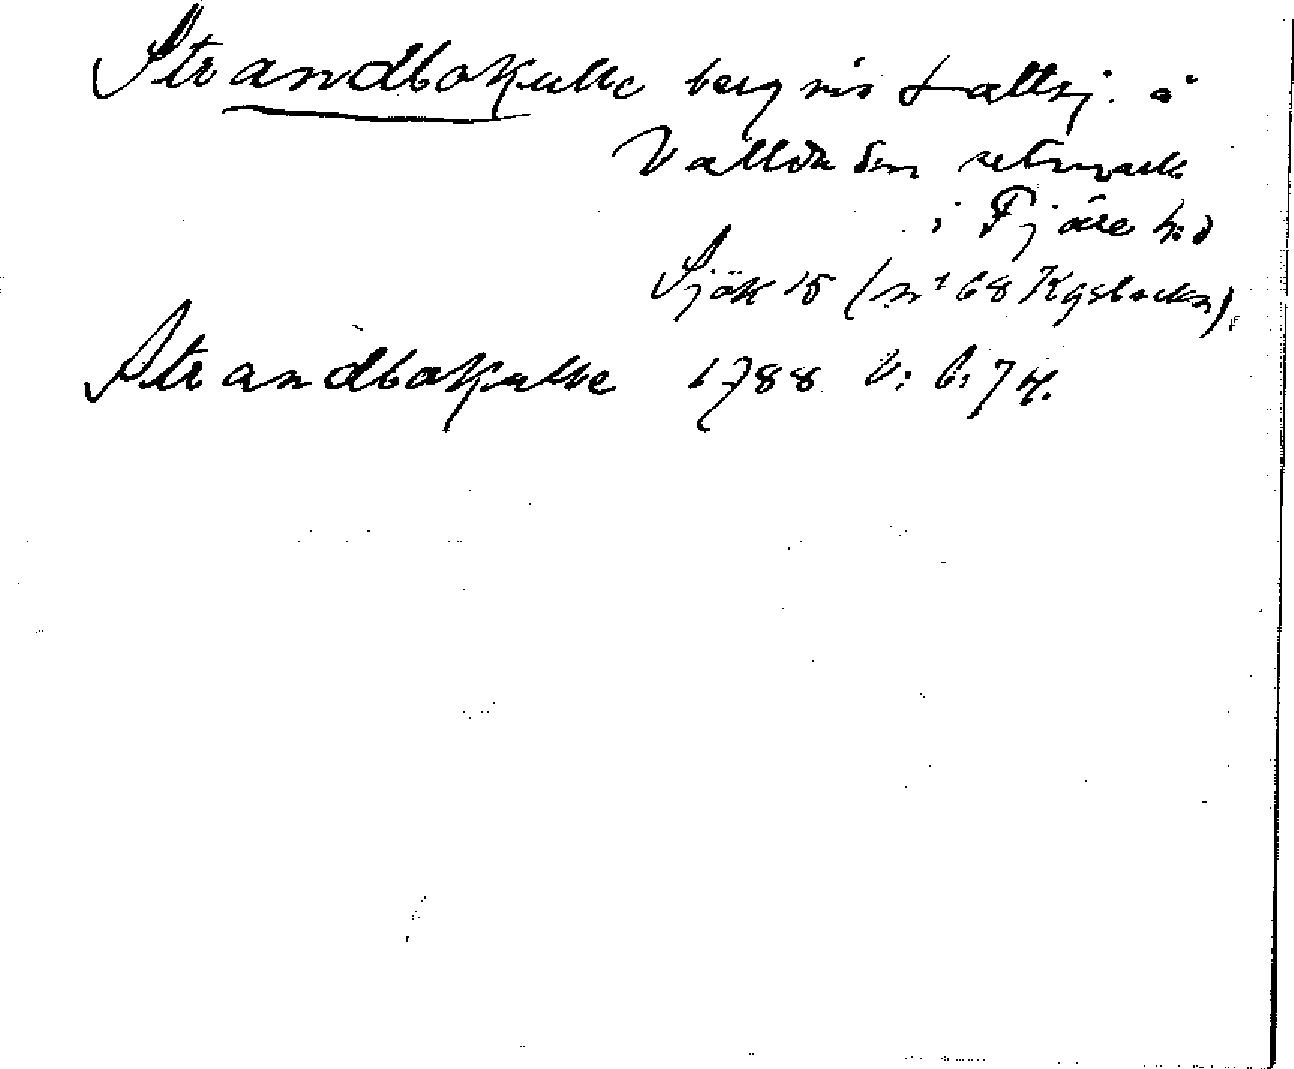 Strandbakulle berg vis Lallsj. å
Vallda sn utmark
i Fjäre hd
Sjök 15 (nt 68 Kgsbacka)
Strandbakulle 1788 6:74.